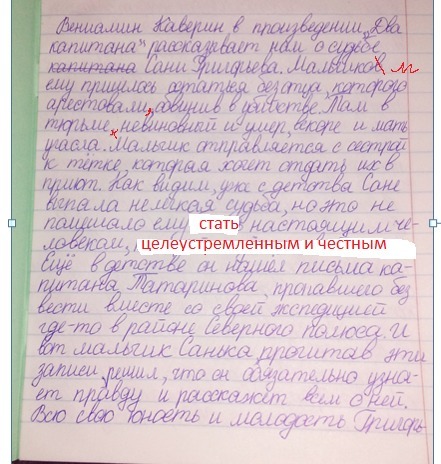 Вениамин Каверин в произведении „Два
капитана" рассказывает нам о судьбе
капитана Сани Григорьева. Мальчиков м
ему пришлось остаться без отца, которого
арестовали, обвинив в убийстве. Там в
тюрьме, невиновной и умер, вскоре и мать
угасла. Мальчик отправляется с сестрой
к тётке, которая хочет отдать их в
приют. Как видим, уже с детства Сане
выпала нелёгкая судьба, но это не
помешало ему стать настоящим че-
ловеком, целеустремленным и честным
Ещё в детстве он нашёл письма ка-
питана Татаринова, пропавшего без
вести вместе со своей экспедицией
где-то в районе Северного полюса. И
вот мальчик Санька, прочитав эти
записи, решил, что он обязательно узна-
ет правду и расскажет всем о ней.
Всю свою юность и молодость Григорь